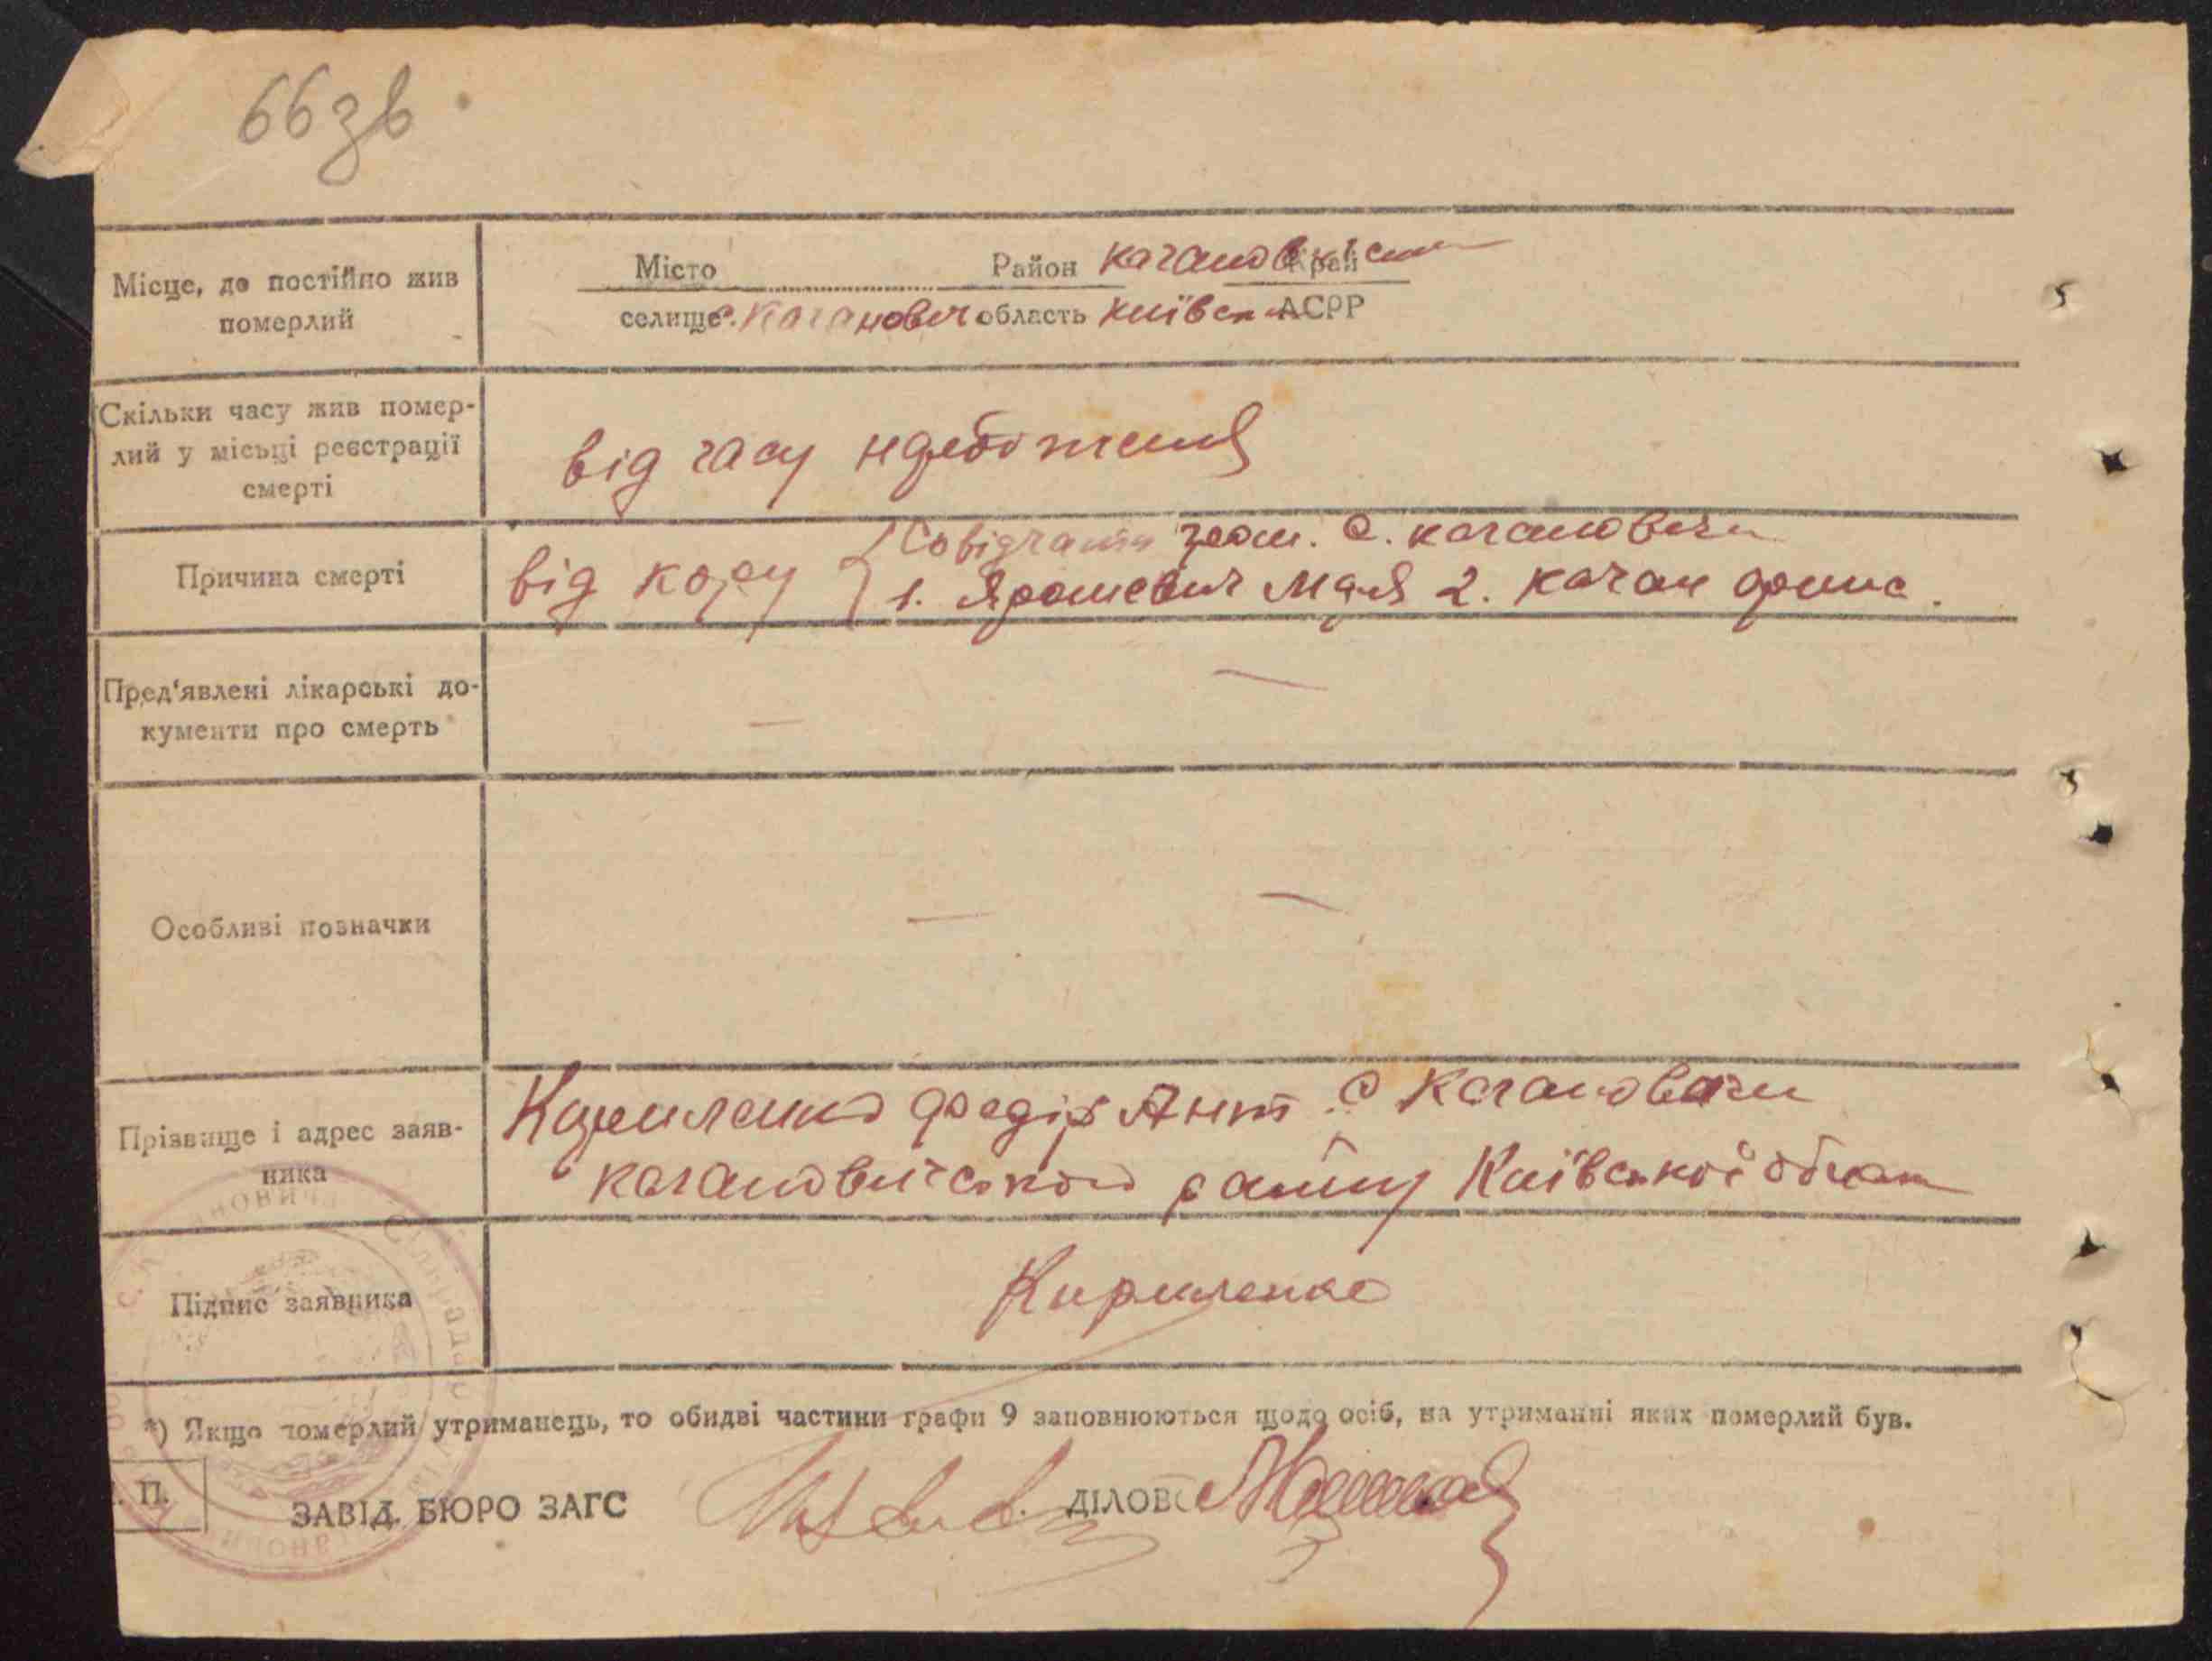 66зв
Місце, де постійно жив
померлий
Місто Район Край
селище с. Каганович область київськ АСРР
Скільки часу жив помер-
лий у місьці реєстрації
смерті
від часу
Причина смерті
від кору
гром. с. кагановичи
1. Ярошевич 2. каган
Пред'явлені лікарські до-
кументи про смерть
—
Особливі позначки
—
Прізвище і адрес заяв-
ника
Кириленко Федір Ант. с Кагановичи
кагановичського району Київської област
Підпис заявника
Кириленко
*) Якщо померлий утриманець, то обидві частини графи 9 заповнюються щодо осіб, на утриманні яких померлий був.
П.
ЗАВІД. БЮРО ЗАГС ДІЛОВ